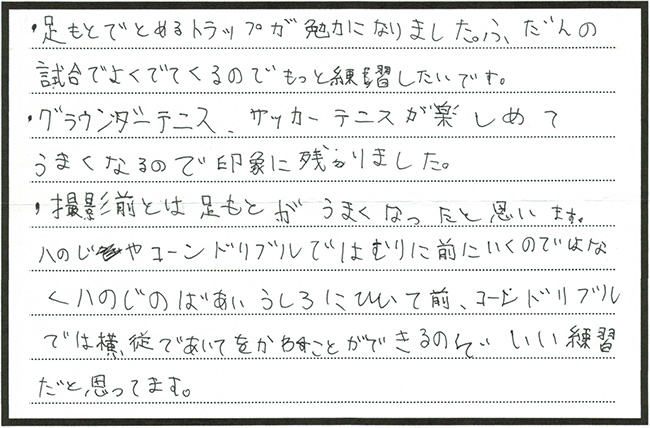 ・足もとでとめるトラップが勉強になりました。ふ、だんの
試合でよくでてくるのでもっと練習したいです。
・グラウンダーテニス、サッカーテニスが楽しめて
うまくなるので印象に残りました。
・撮影前とは足もとがうまくなったと思います。
ハのじやコーンドリブルではむりに前にいくのではな
くハのじのばあいうしろにひいて前、コーンドリブル
では横、従であいてをかわすことができるので、いい練習
だと思ってます。